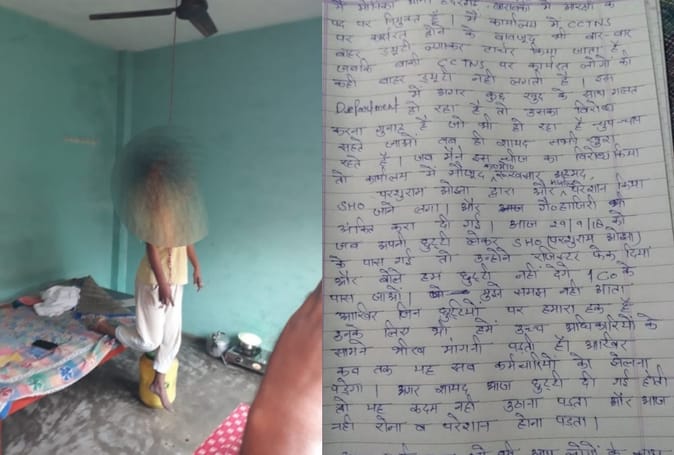 पद पर नियुक्त है। मैं कार्यालय में CCTNS
पर कार्यरत होने के बावजूद भी बार-बार
बाहर ड्यूटी लगाकर टार्चर किया जाता है
जबकि बाकी CCTNS पर कार्यरत लोगों की
कही बाहर ड्यूटी नहीं लगती है। इस
Department में अगर कुछ खुद के साथ गलत
हो रहा है तो उसका विरोध
करना गुनाह है जो भी हो रहा है चुप-चाप
सहते जाओ तब ही शायद सभी खुश
रहते हैं। जब मैंने इस चीज का विरोध किया
तो कार्यालय में मौजूद अहमद,
SHO परशुराम ओझा द्वारा और परेशान किया
जाने लगा। और गै०हाजिरी भी
अंकित करा दी गई। आज 29/9/18 को
जब अपनी छुट्टी लेकर SHO (परशुराम ओझा)
के पास गई तो उन्होंने रजिस्टर फेंक दिया
और बोले हम छुट्टी नहीं देंगे, Co के
पास जाओ। मुझे समझ नहीं आता
आखिर जिन छुट्टियों पर हमारा हक है
उनके लिए भी हमें उच्च अधिकारियों के
सामने भीख मांगनी पड़ती है। आखिर
कब तक यह सब कर्मचारियों को झेलना
पड़ेगा। अगर शायद आज छुट्टी दी गई होती
तो यह कदम नहीं उठाना पड़ता और आज
नहीं रोना व परेशान होना पड़ता।